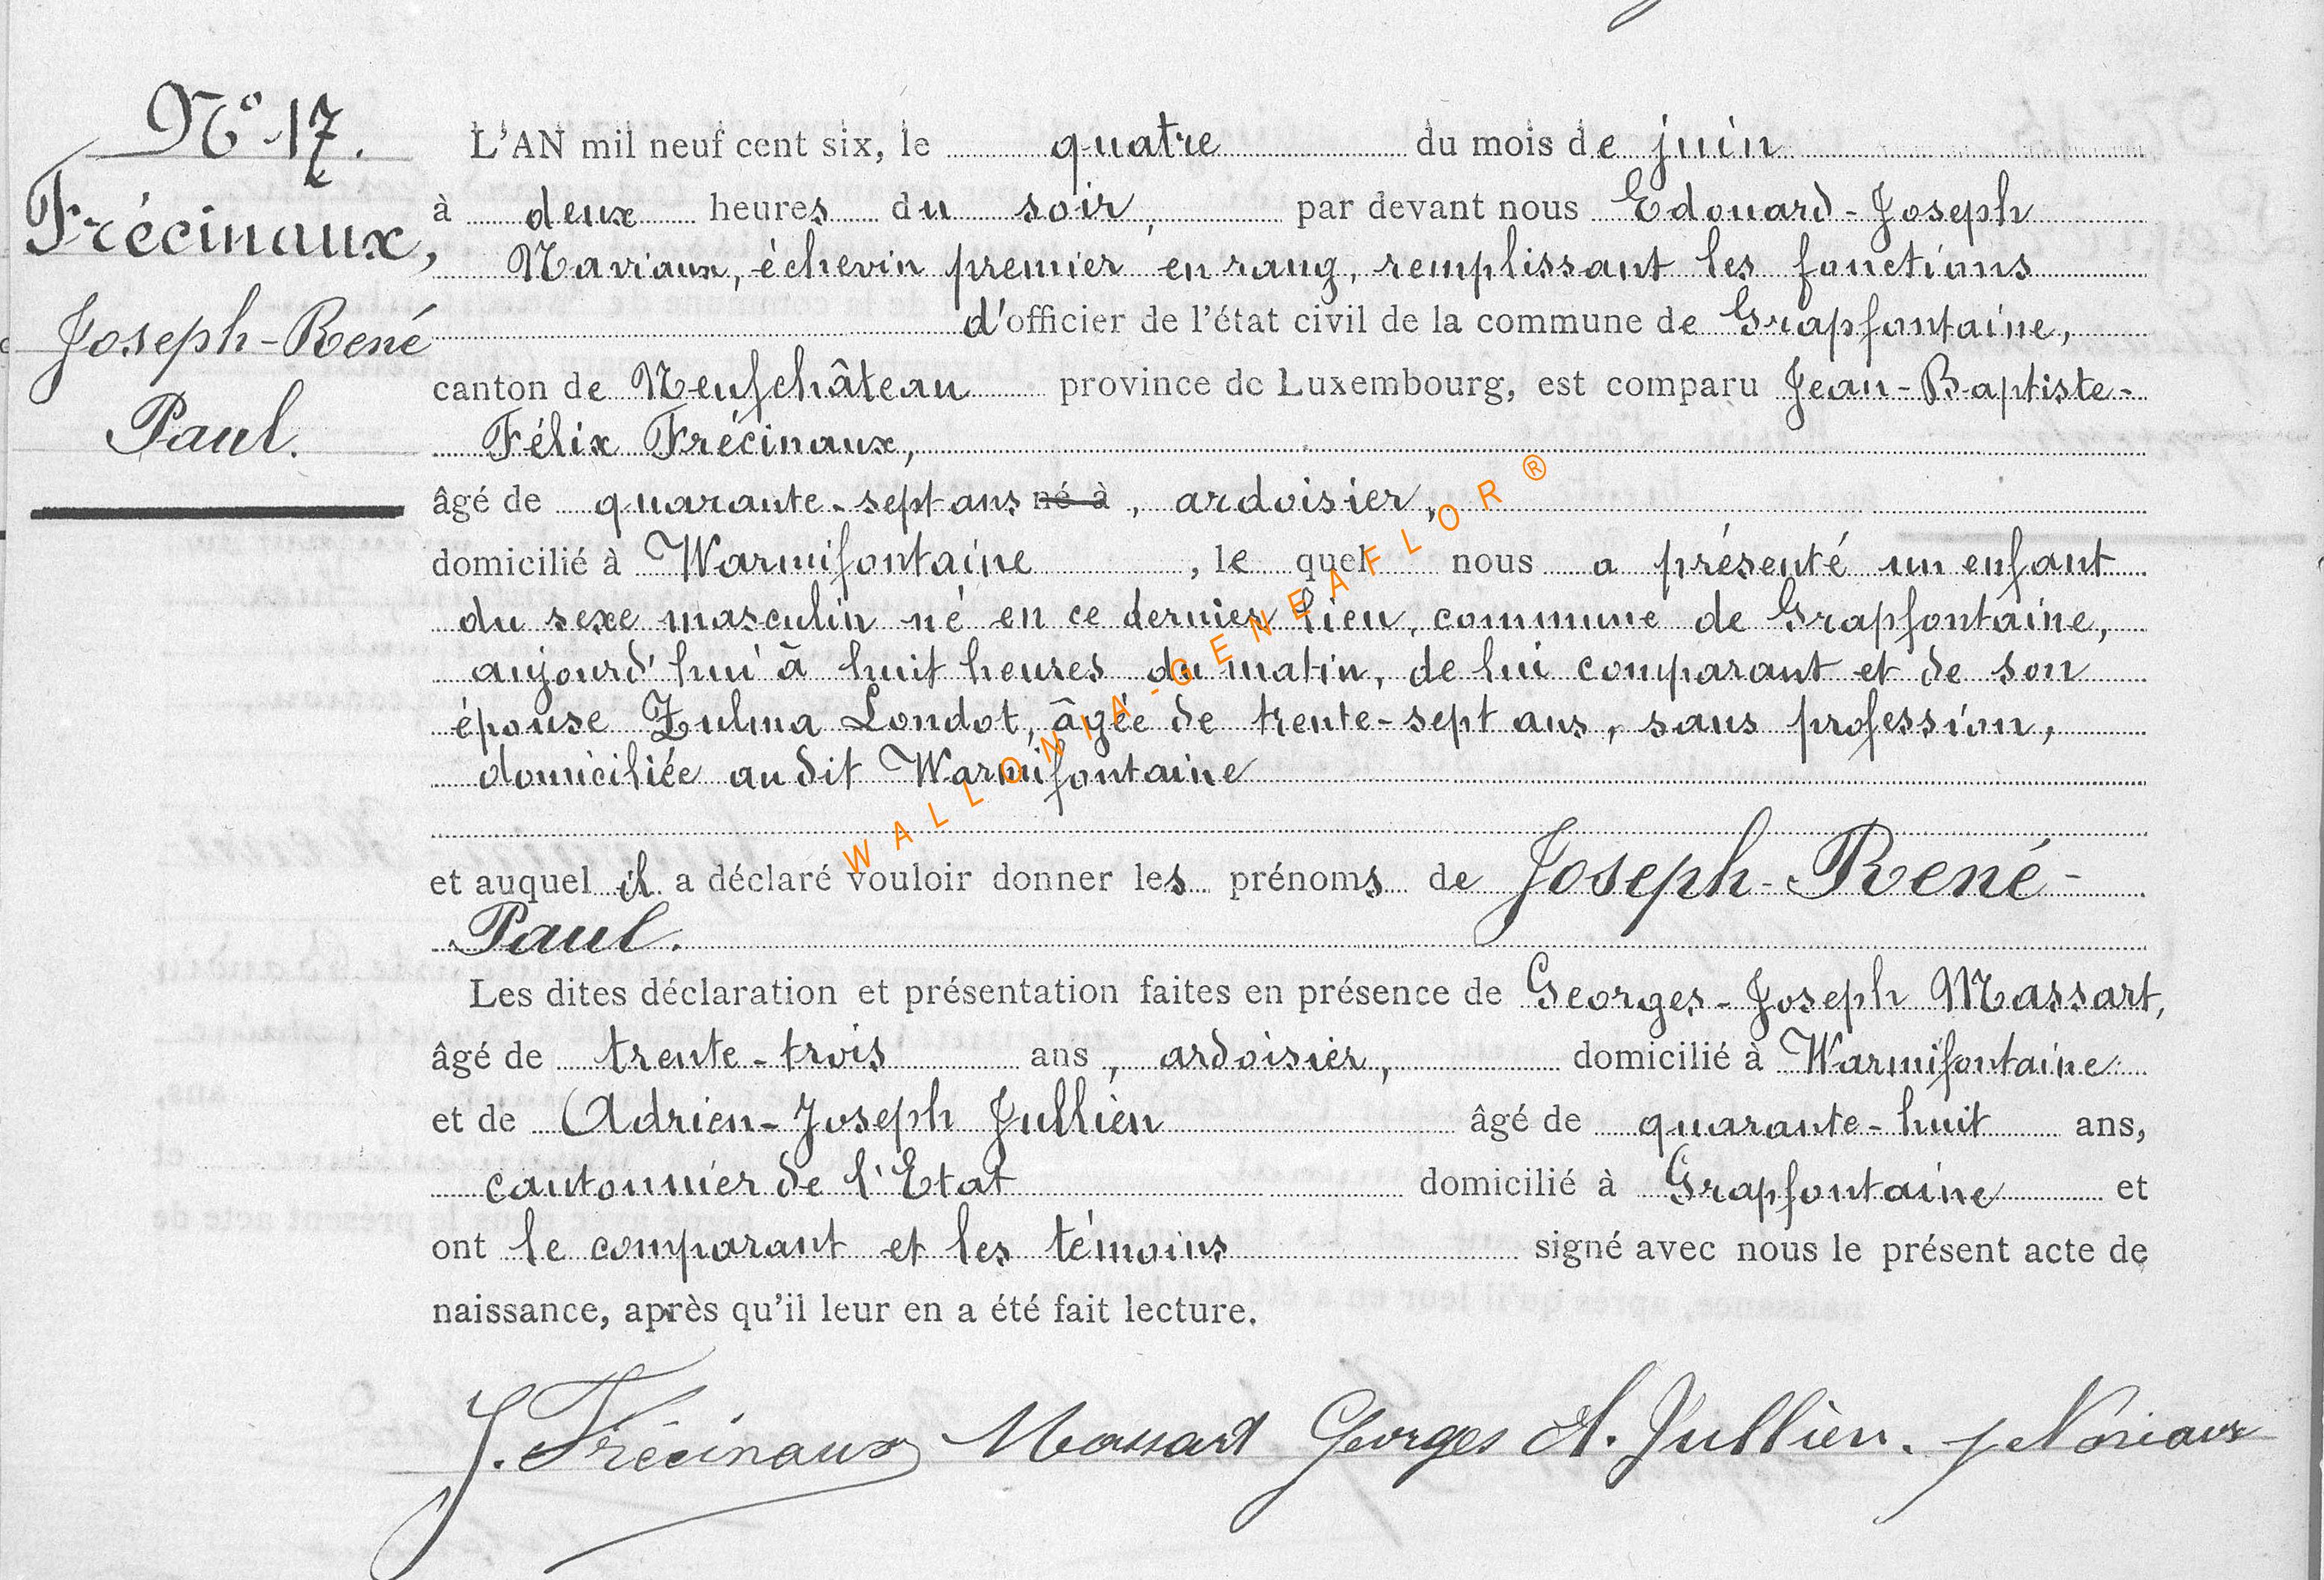 N° 17.
Frécinaux,
Joseph-René
Paul.
L'AN mil neuf cent six, le quatre du mois de juin
à deux heures du soir, par devant nous Edouard-Joseph
Naviaux, échevin premier en rang, remplissant les fonctions
d'officier de l'état civil de la commune de Grapfontaine,
canton de Neufchâteau province de Luxembourg, est comparu Jean-Baptiste-
Félix Frécinaux,
âgé de quarante-sept ans né à, ardoisier,
domicilié à Warmifontaine, le quel nous a présenté un enfant
du sexe masculin né en ce dernier lieu, commune de Grapfontaine,
aujourd'hui à huit heures du matin, de lui comparant et de son
épouse Zulma Londot, âgée de trente-sept ans, sans profession,
domiciliée audit Warmifontaine
et auquel il a déclaré vouloir donner les prénoms de Joseph-René-
Paul.
Les dites déclaration et présentation faites en présence de Georges-Joseph Massart,
âgé de trente-trois ans, ardoisier, domicilié à Warmifontaine
et de Adrien-Joseph Jullien âgé de quarante-huit ans,
cantonnier de l'Etat domicilié à Grapfontaine et
ont le comparant et les témoins signé avec nous le présent acte de
naissance, après qu'il leur en a été fait lecture.
J. Frécinaux Massart Georges A. Jullien.
WALLONIA-GENEAFLOR®